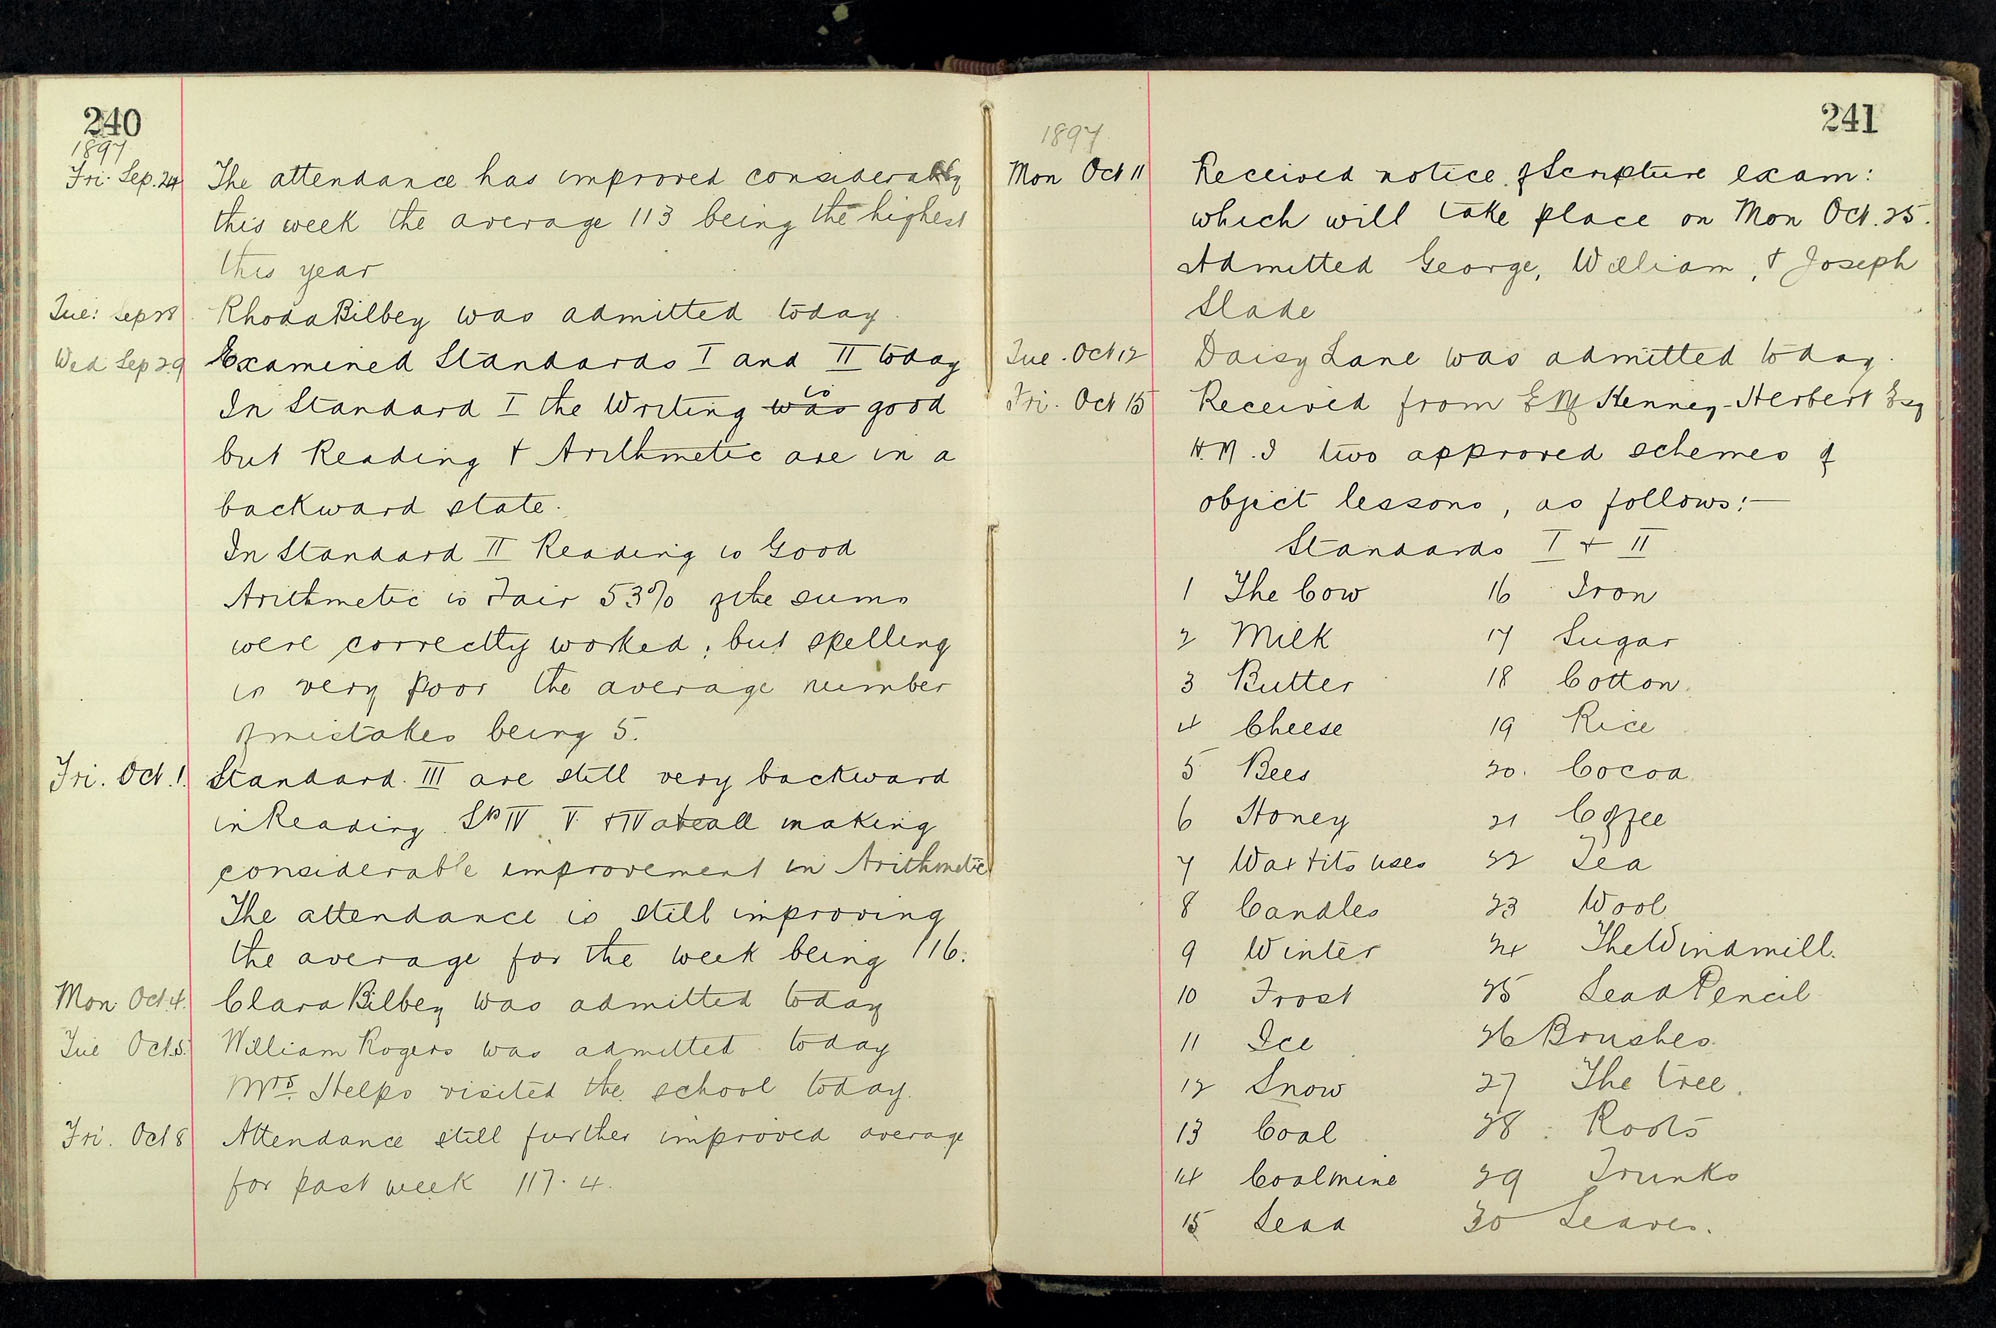 240
1897
Fri. Sep. 24 The attendance has improved considerably
this week the average 113 being the highest
this year
Tue: Sep 28 Rhoda Bilbey was admitted today.
Wed Sep 29 Examined Standards I and II today
is
In Standard I the Writing was good
but Reading + Arithmetic are in a
backward state.
In Standard II Reading is Good
Arithmetic is Fair 53% of the sums
were correctly worked; but spelling
is very poor the average number
of mistakes being 5.
Fri. Oct. 1. Standard III are still very backward
in Reading. Sds IV V + IV are all making
considerable improvement in Arithmetic
The attendance is still improving
the average for the week being 116.
Mon Oct 4. Clara Bilbey was admitted today
Tue Oct 5. William Rogers was admitted today
Mrs. Helps visited the school today.
Fri. Oct 8 Attendance still further improved average
for past week 117.4.
241
1897.
Mon Oct 11 Received notice of Scripture exam:
which will take place on Mon Oct. 25.
Admitted George, William, + Joseph
Slade
Tue. Oct 12 Daisy Lane was admitted today.
Fri. Oct 15 Received from E M Kenney-Herbert Esq
H.M.I two approved schemes of
object lessons, as follows:—
Standards I + II
1 The Cow 16 Iron
2 Milk 17 Sugar
3 Butter 18 Cotton.
4 Cheese 19 Rice
5 Bees 20. Cocoa.
6 Honey 21 Coffee
7 Wax + its uses 22 Tea
8 Candles 23 Wool
9 Winter 24 The Windmill.
10 Frost 25 Lead Pencil
11 Ice 26 Brushes.
12 Snow 27 The tree.
13 Coal 28. Roots
14 Coalmine 29 Trunks
15 Lead 30 Leaves.